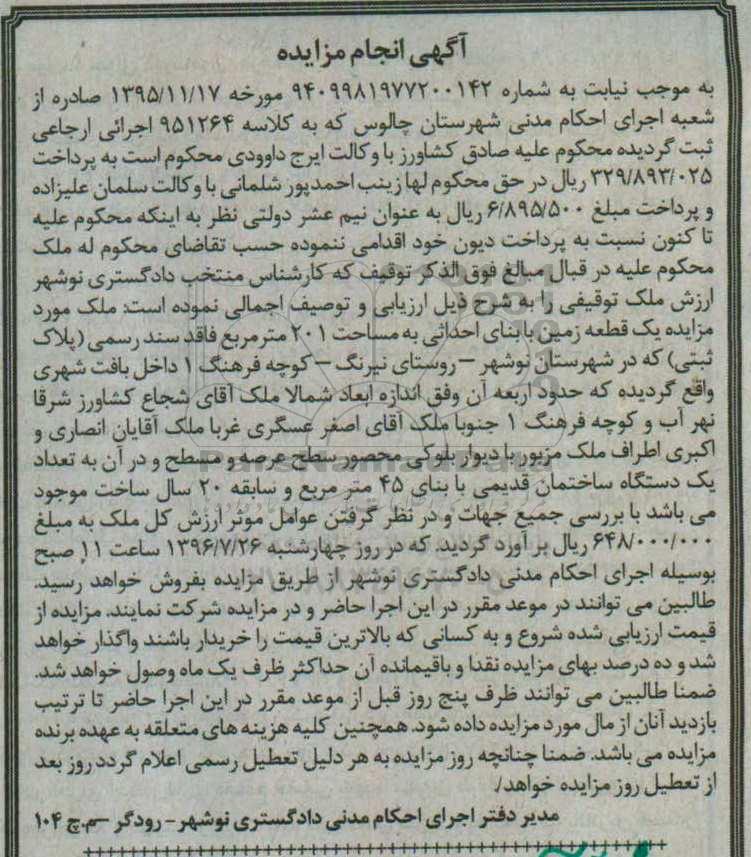 آگهی انجام مزایده
به موجب نیابت به شماره ۹۴۰۹۹۸۱۹۷۷۲۰۰۱۴۲ مورخه ۱۳۹۵/۱۱/۱۷ صادره از
شعبه اجرای احکام مدنی شهرستان چالوس که به کلاسه ۹۵۱۲۶۴ اجرائی ارجاعی
ثبت گردیده محکوم علیه صادق کشاورز با وکالت ایرج داوودی محکوم است به پرداخت
۳۲۹/۸۹۳/۰۲۵ ریال در حق محکوم لها زینب احمدپور شلمانی با وکالت سلمان علیزاده
و پرداخت مبلغ ۶/۸۹۵/۵۰۰ ریال به عنوان نیم عشر دولتی نظر به اینکه محکوم علیه
تا کنون نسبت به پرداخت دیون خود اقدامی ننموده حسب تقاضای محکوم له ملک
محکوم علیه در قبال مبالغ فوق الذکر توقیف که کارشناس منتخب دادگستری نوشهر
ارزش ملک توقیفی را به شرح ذیل ارزیابی و توصیف اجمالی نموده است: ملک مورد
مزایده یک قطعه زمین با بنای احداثی به مساحت ۲۰۱ مترمربع فاقد سند رسمی (پلاک
ثبتی) که در شهرستان نوشهر – روستای نیرنگ – کوچه فرهنگ ۱ داخل بافت شهری
واقع گردیده که حدود اربعه آن وفق اندازه ابعاد شمالا ملک آقای شجاع کشاورز شرقا
نهر آب و کوچه فرهنگ ۱ جنوبا ملک آقای اصغر عسگری غربا ملک آقایان انصاری و
اکبری اطراف ملک مزبور با دیوار بلوکی محصور سطح عرصه و مسطح و در آن به تعداد
یک دستگاه ساختمان قدیمی با بنای ۴۵ متر مربع و سابقه ۲۰ سال ساخت موجود
می باشد با بررسی جمیع جهات و در نظر گرفتن عوامل موثر ارزش کل ملک به مبلغ
۶۴۸/۰۰۰/۰۰۰ ریال بر آورد گردید. که در روز چهارشنبه ۱۳۹۶/۷/۲۶ ساعت ۱۱ صبح
بوسیله اجرای احکام مدنی دادگستری نوشهر از طریق مزایده بفروش خواهد رسید.
طالبین می توانند در موعد مقرر در این اجرا حاضر و در مزایده شرکت نمایند. مزایده از
قیمت ارزیابی شده شروع و به کسانی که بالاترین قیمت را خریدار باشند واگذار خواهد
شد و ده درصد بهای مزایده نقدا و باقیمانده آن حداکثر ظرف یک ماه وصول خواهد شد.
ضمنا طالبین می توانند ظرف پنج روز قبل از موعد مقرر در این اجرا حاضر تا ترتیب
بازدید آنان از مال مورد مزایده داده شود. همچنین کلیه هزینه های متعلقه به عهده برنده
مزایده می باشد. ضمنا چنانچه روز مزایده به هر دلیل تعطیل رسمی اعلام گردد روز بعد
از تعطیل روز مزایده خواهد/.
مدیر دفتر اجرای احکام مدنی دادگستری نوشهر – رودگر – م.چ ۱۰۴